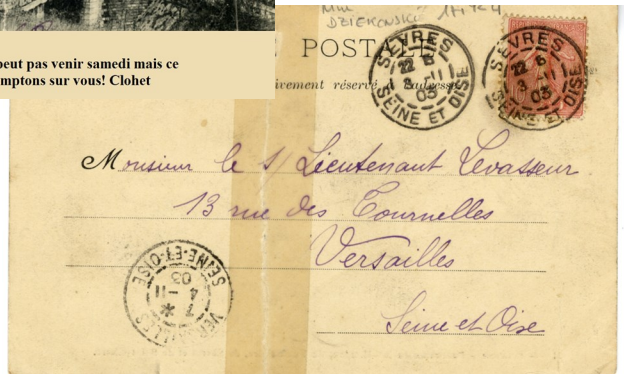 peut pas venir samedi mais ce
mptons sur vous! Clohet
DZIEKONSKI
E POSTA
ivement réservé à l'adresse
SÈVRES
22 E
3 -11
03
SEINE ET OISE
SÈVRES
22 E
3 -11
03
SEINE ET OISE
Monsieur le s/ Lieutenant Levasseur
13 rue des Tournelles
Versailles
Seine et Oise
VERSAILLES
7 *
4 -11
03
SEINE-ET-OISE